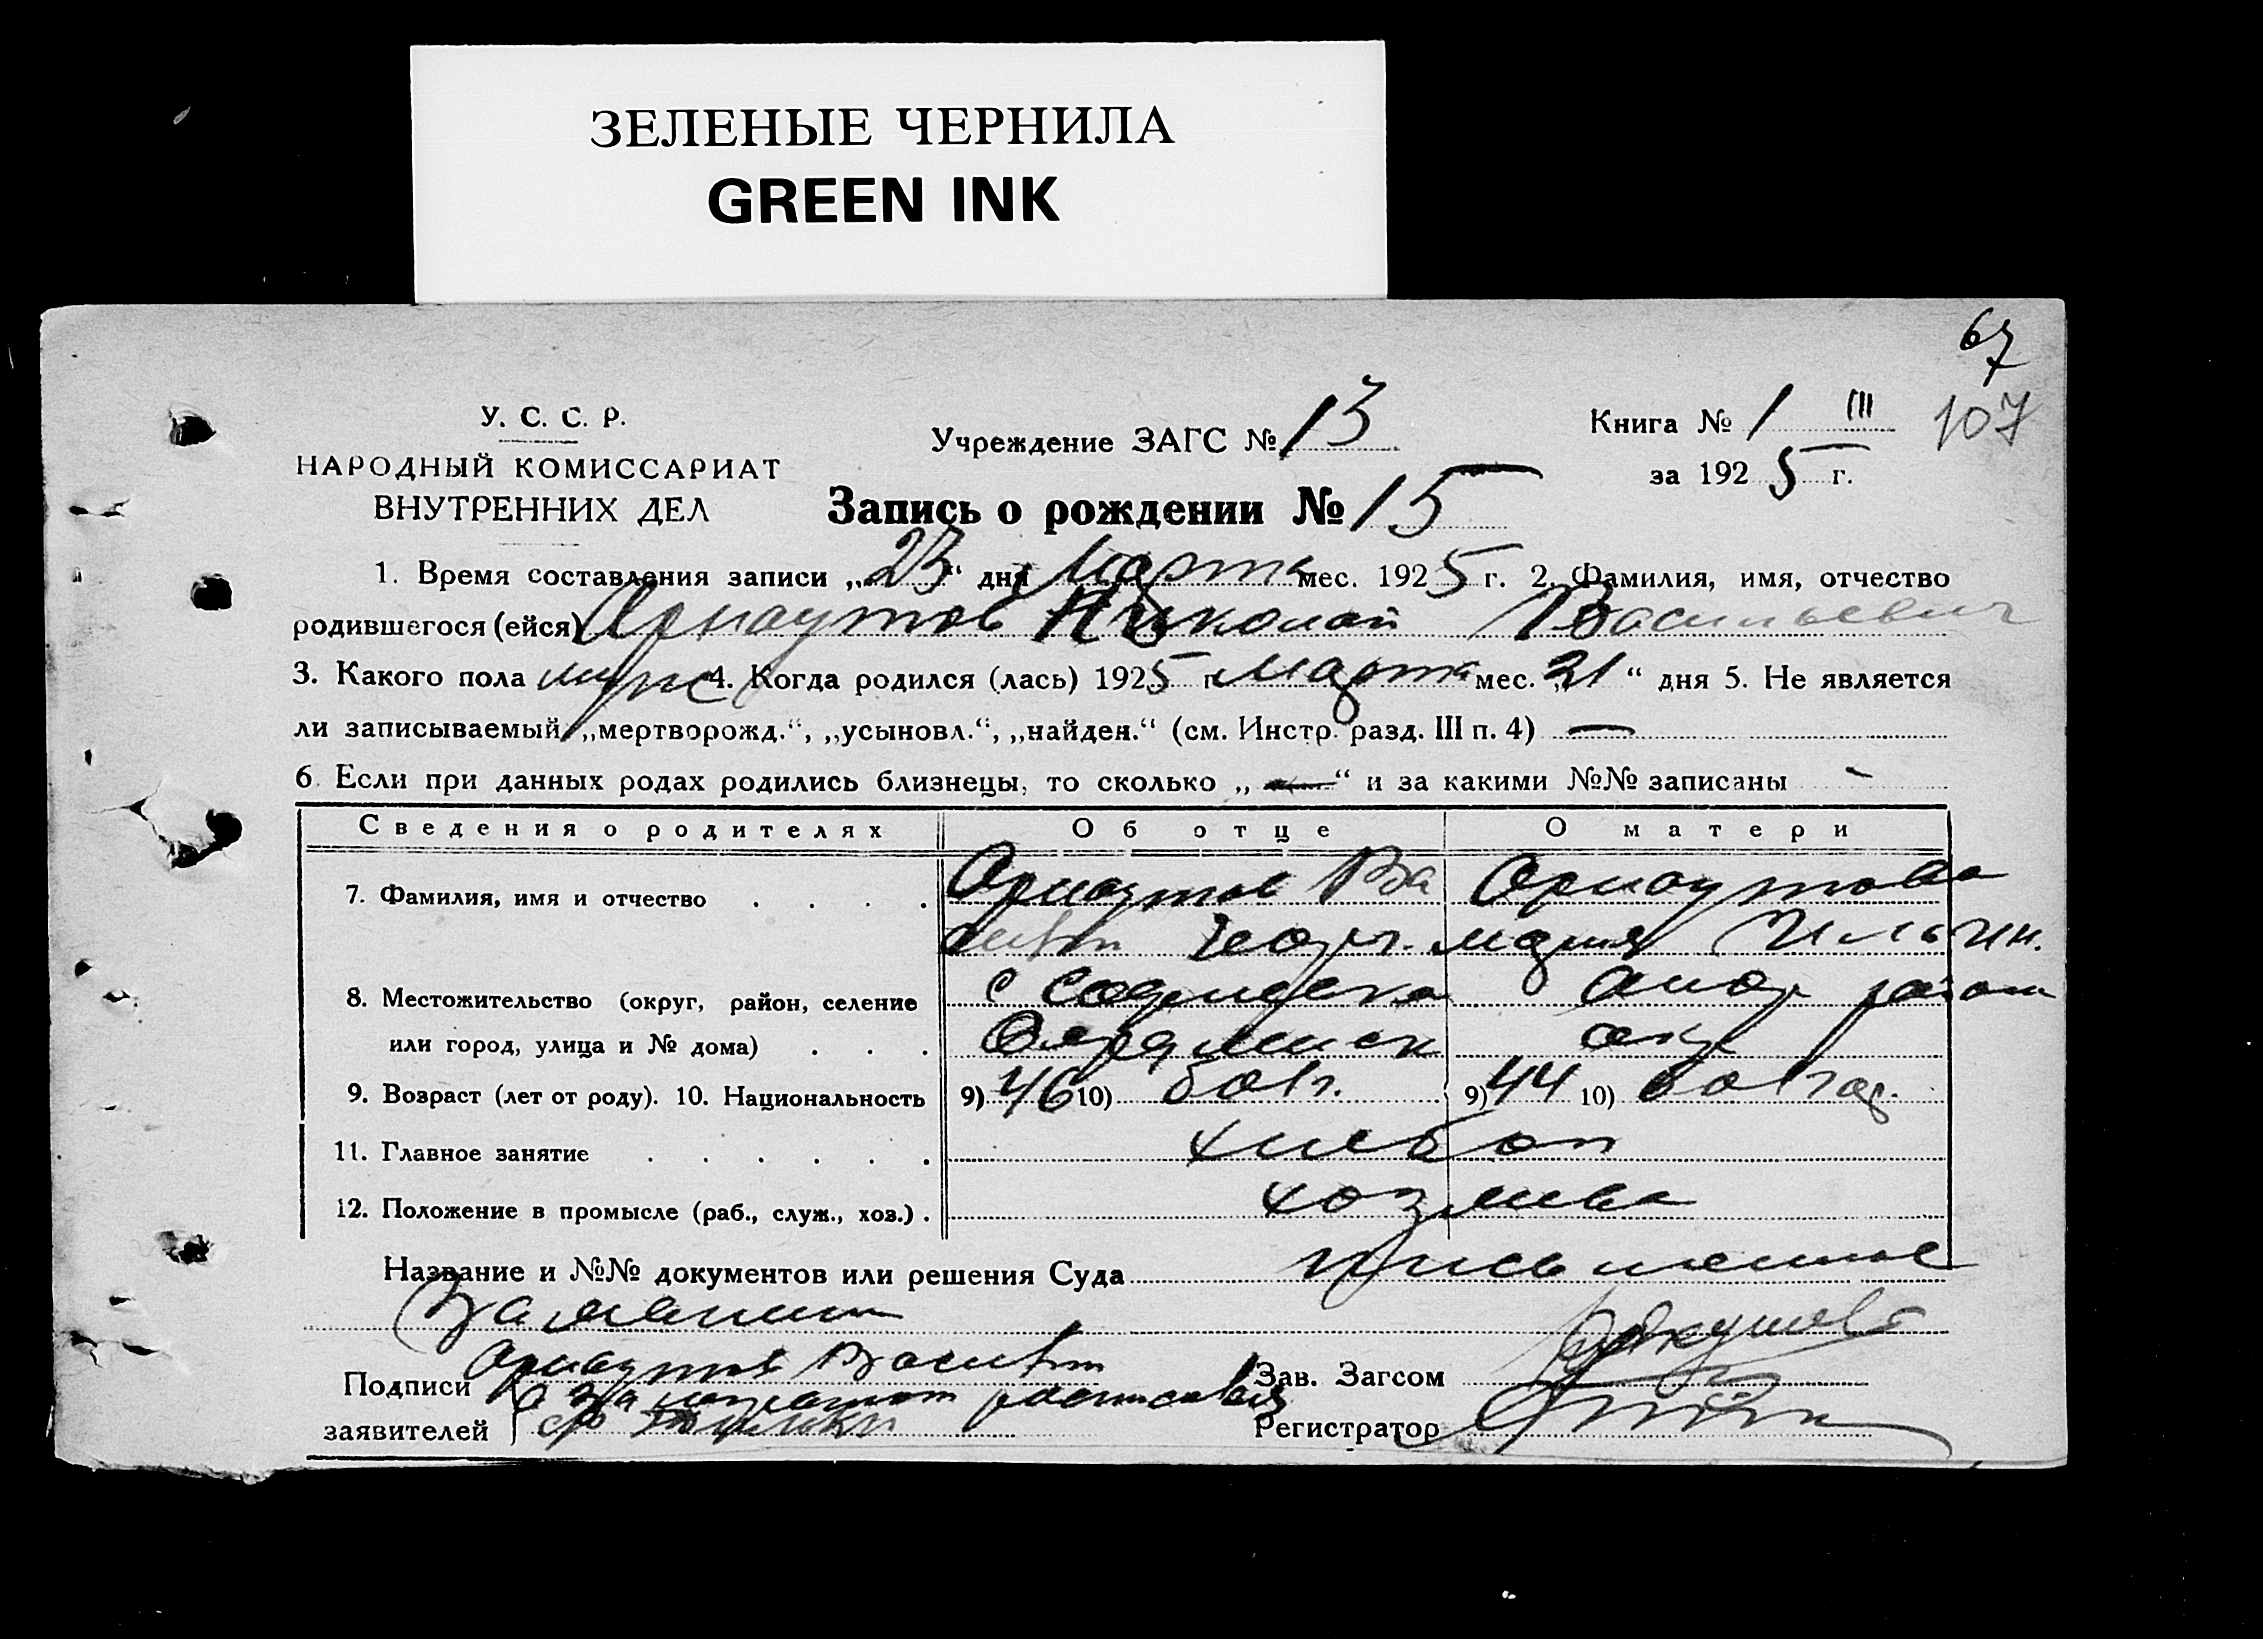 ЗЕЛЕНЫЕ ЧЕРНИЛА
GREEN INK
67
У. С. С. Р.
НАРОДНЫЙ КОМИССАРИАТ
ВНУТРЕННИХ ДЕЛ
Учреждение ЗАГС № 13
Книга № 1 III 107
за 1925 г.
Запись о рождении № 15
1. Время составления записи „23“ дня Марта мес. 1925 г. 2. Фамилия, имя, отчество
родившегося (ейся) Арнаутов Николай Васильевич
3. Какого пола муж 4. Когда родился (лась) 1925 г. Марта мес. „21“ дня 5. Не является
ли записываемый „мертворожд.“, „усыновл.“, „найден.“ (см. Инстр. разд. III п. 4) —
6. Если при данных родах родились близнецы, то сколько „—“ и за какими №№ записаны -
Сведения о родителях Об отце О матери
7. Фамилия, имя и отчество Арнаутов Ва Арнаутова
Георг. Мария Ильин.
8. Местожительство (округ, район, селение с район
или город, улица и № дома)
9. Возраст (лет от роду). 10. Национальность 9) 46 10) болг. 9) 44 10) болгар.
11. Главное занятие хлебоп
12. Положение в промысле (раб., служ., хоз.) хозяева
Название и №№ документов или решения Суда письменное
Арнаутов Васил
Подписи а за неграмот расписался
заявителей
Зав. Загсом
Регистратор